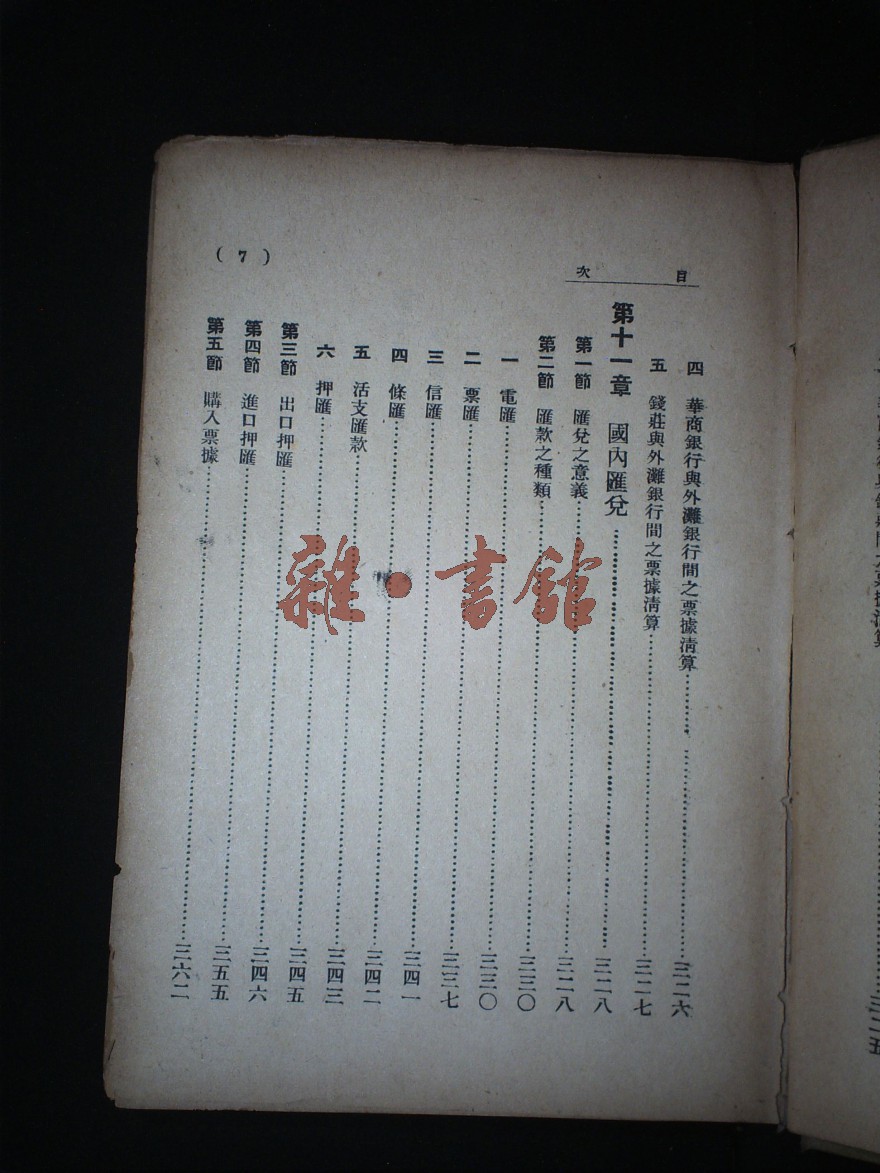 目次
四 華商銀行與外灘銀行間之票據清算……三二六
五 錢莊與外灘銀行間之票據清算……三二七
第十一章 國內匯兌……三二八
第一節 匯兌之意義……三二八
第二節 匯款之種類……三三〇
一 電匯……三三〇
二 票匯……三三七
三 信匯……三四一
四 條匯……三四二
五 活支匯款……三四三
六 押匯……三四五
第三節 出口押匯……三四六
第四節 進口押匯……三五五
第五節 購入票據……三六二
( 7 )
雜·書館